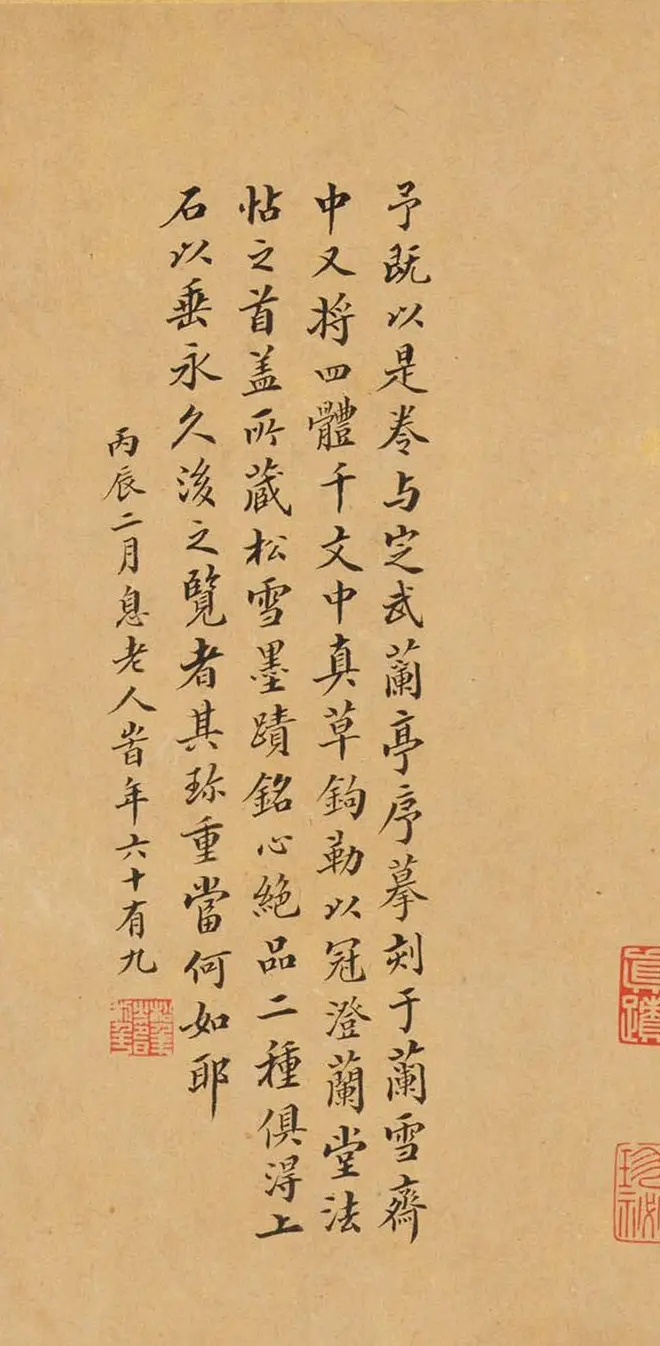 予既以是卷与定武蘭亭序摹刻于蘭雪齋
中又將四體千文中真草鉤勒以冠澄蘭堂法
帖之首盖所藏松雪墨蹟銘心絕品二種俱得上
石以垂永久後之覽者其珎重當何如耶
丙辰二月息老人岺年六十有九
真蹟
珍祕